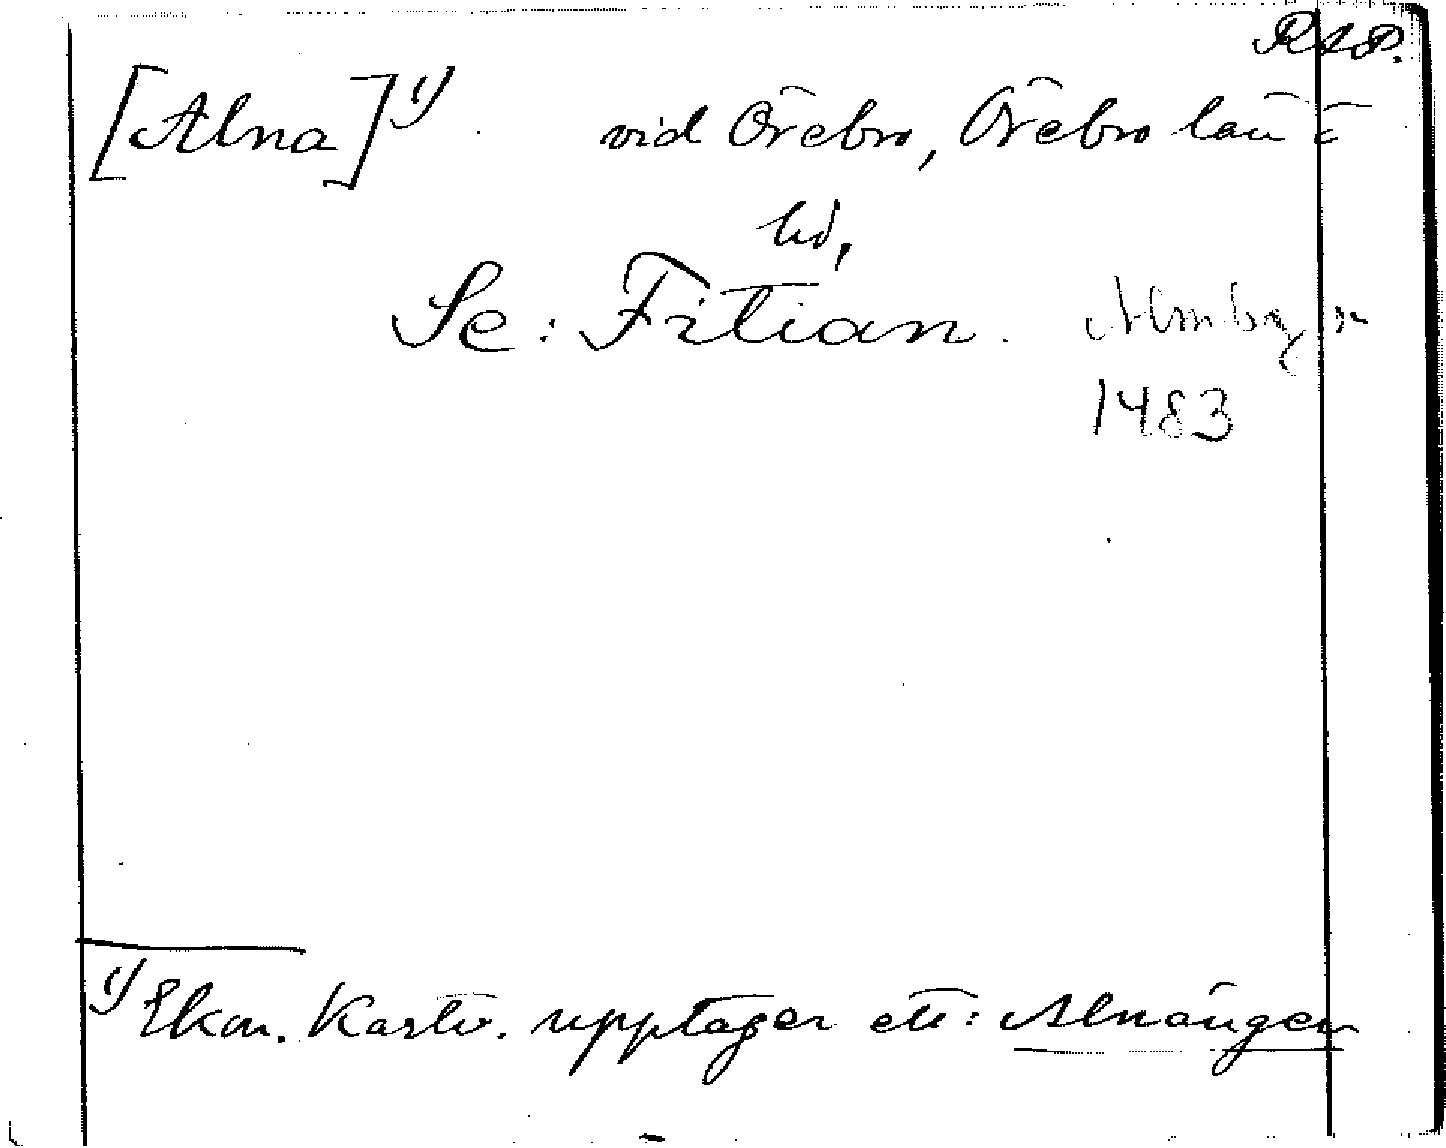 RAP.
[Alna] 1) vid Örebro, Örebro län
hd,
Se: Fitian. Almby sn
1483
1) Ekon. Kartv. upptager ett: Alnängen